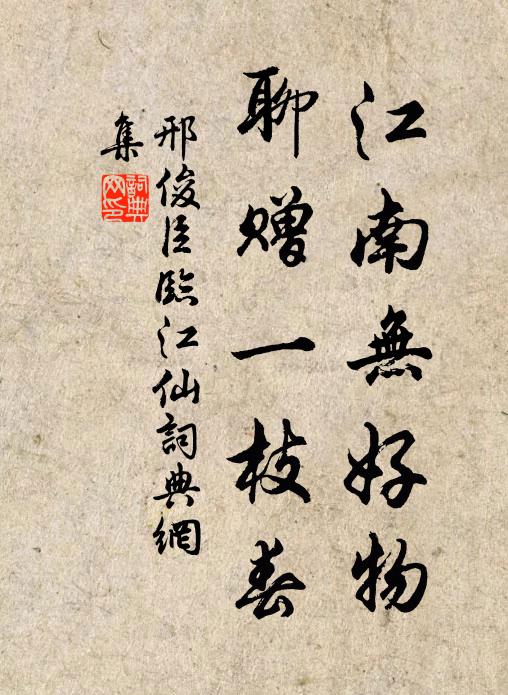 江南無好物
聊贈一枝春
邢俊臣臨江仙詞典網
集
詞典
网印